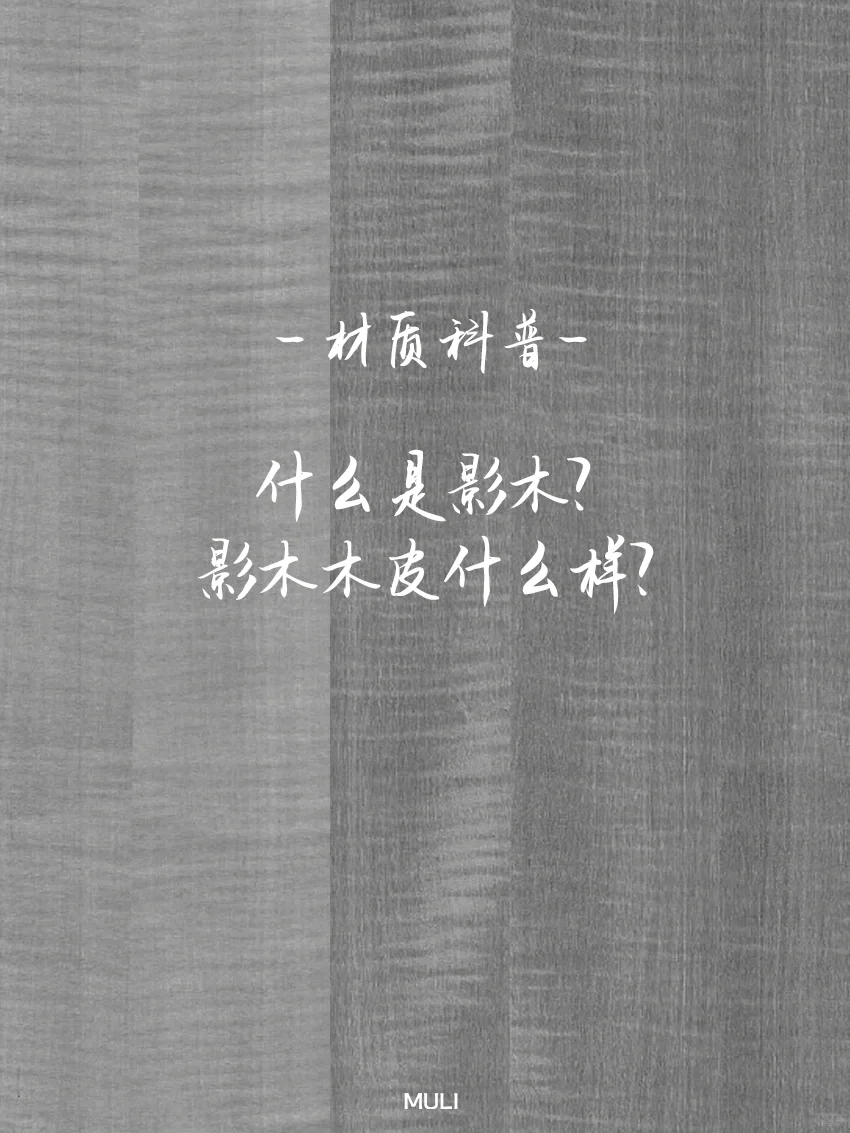 - 材质科普 -
什么是影木?
影木木皮什么样?
MULI